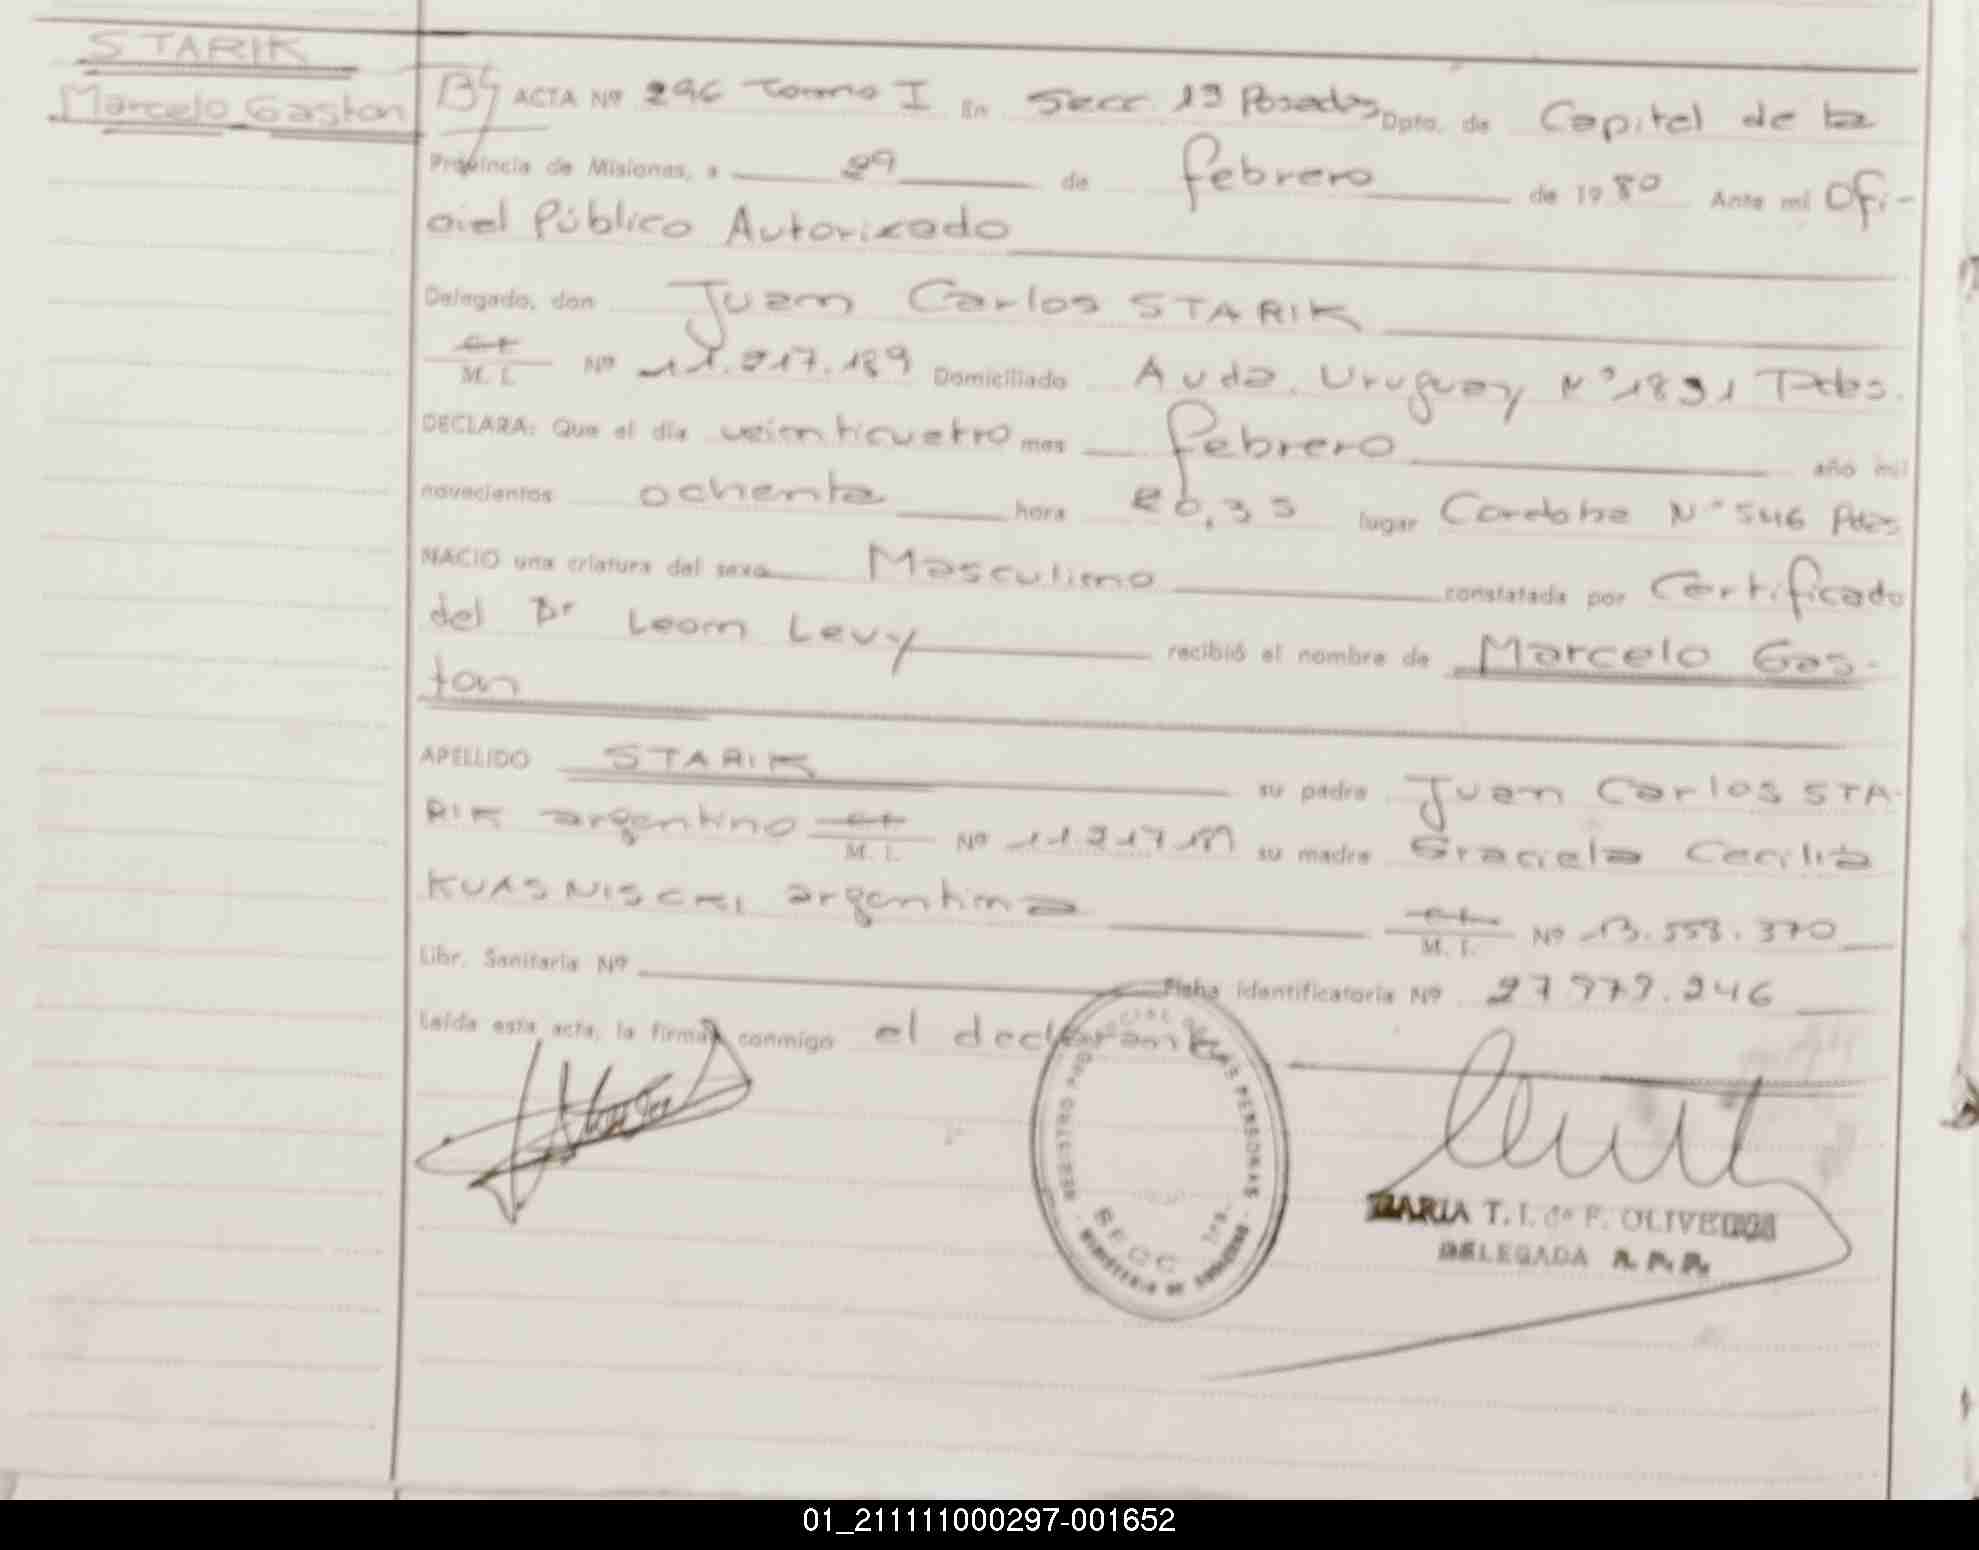 STARIK
Marcelo Gaston
ACTA Nº 296 Tomo I En Secc. 1ª Posadas Dpto. de Capital de la
Provincia de Misiones, a 29 de febrero de 1980 Ante mi Ofi-
cial Público Autorizado
Delegado, don Juan Carlos STARIK
M. I. Nº 11.217.189 Domiciliado Avda. Uruguay Nº 1891 Pdas.
DECLARA: Que el día veinticuatro mes febrero año mil
novecientos ochenta hora lugar Cordoba Nº 546 Pdas
NACIO una criatura del sexo Masculino constatada por Certificado
del Dr Leon Levy recibió el nombre de Marcelo Gas-
ton
APELLIDO STARIK su padre Juan Carlos STA-
RIK argentino M. I. Nº 11.217.189 su madre Graciela Cecilia
KUASNISCKI argentina M. I. Nº 13.558.370
Libr. Sanitaria Nº Ficha identificatoria Nº 27.979.246
Leída esta acta, la firma conmigo el declarante
REGISTRO PROVINCIAL DE LAS PERSONAS
SECC. 1ra.
MINISTERIO DE GOBIERNO
MARIA T. I. de F. OLIVEIRA
DELEGADA R. P. P.
01_211111000297-001652